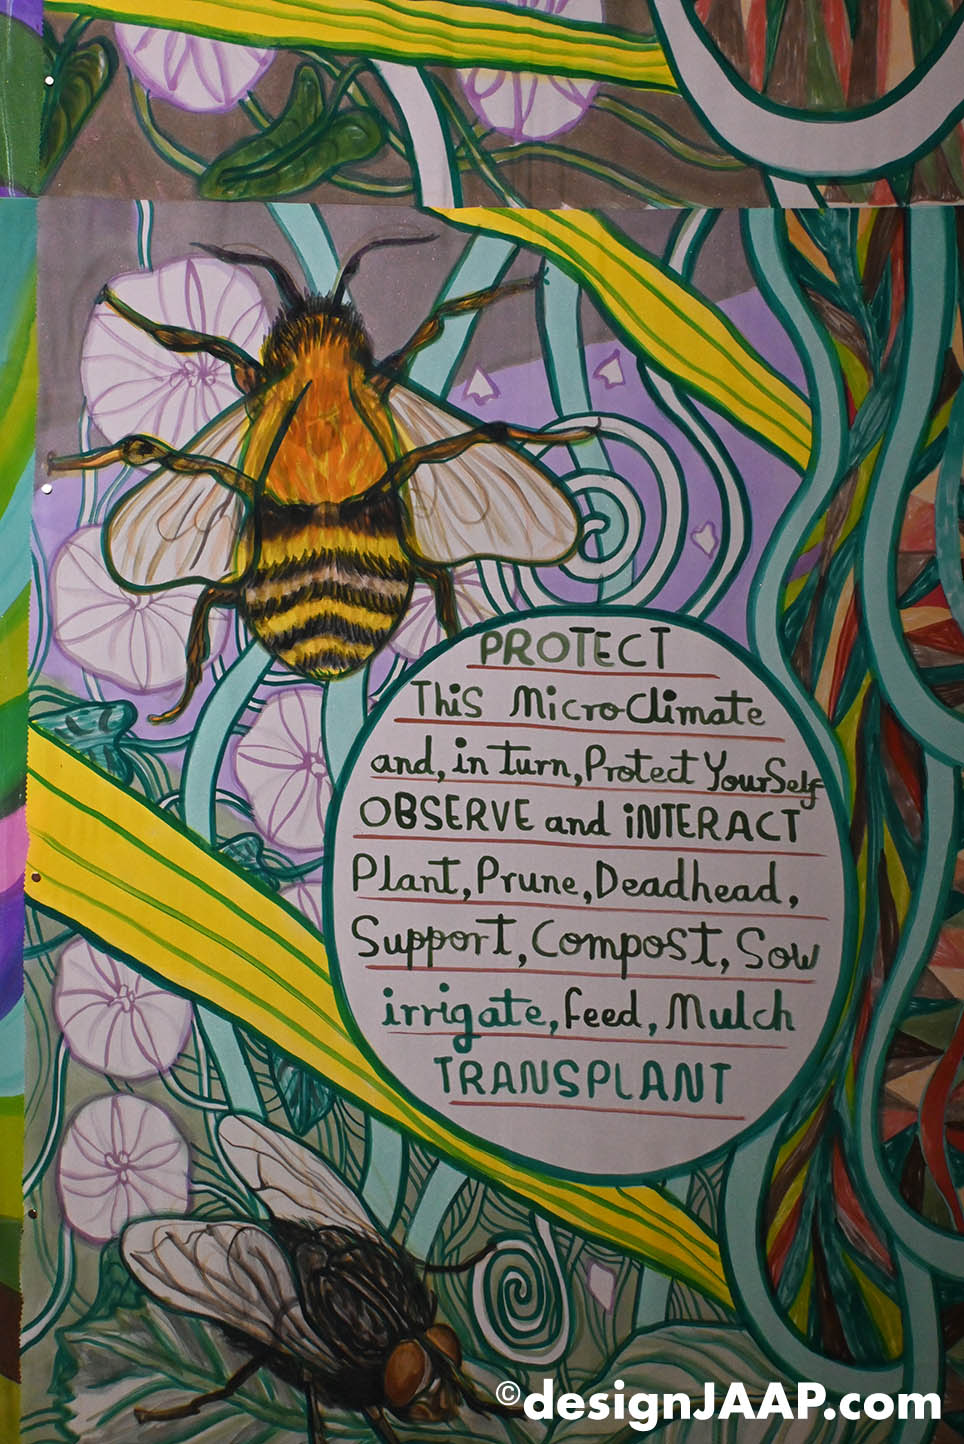 PROTECT
This MicroClimate
and, in turn, Protect YourSelf
OBSERVE and iNTERACT
Plant, Prune, Deadhead,
Support, Compost, Sow
irrigate, feed, Mulch
TRANSPLANT
©designJAAP.com